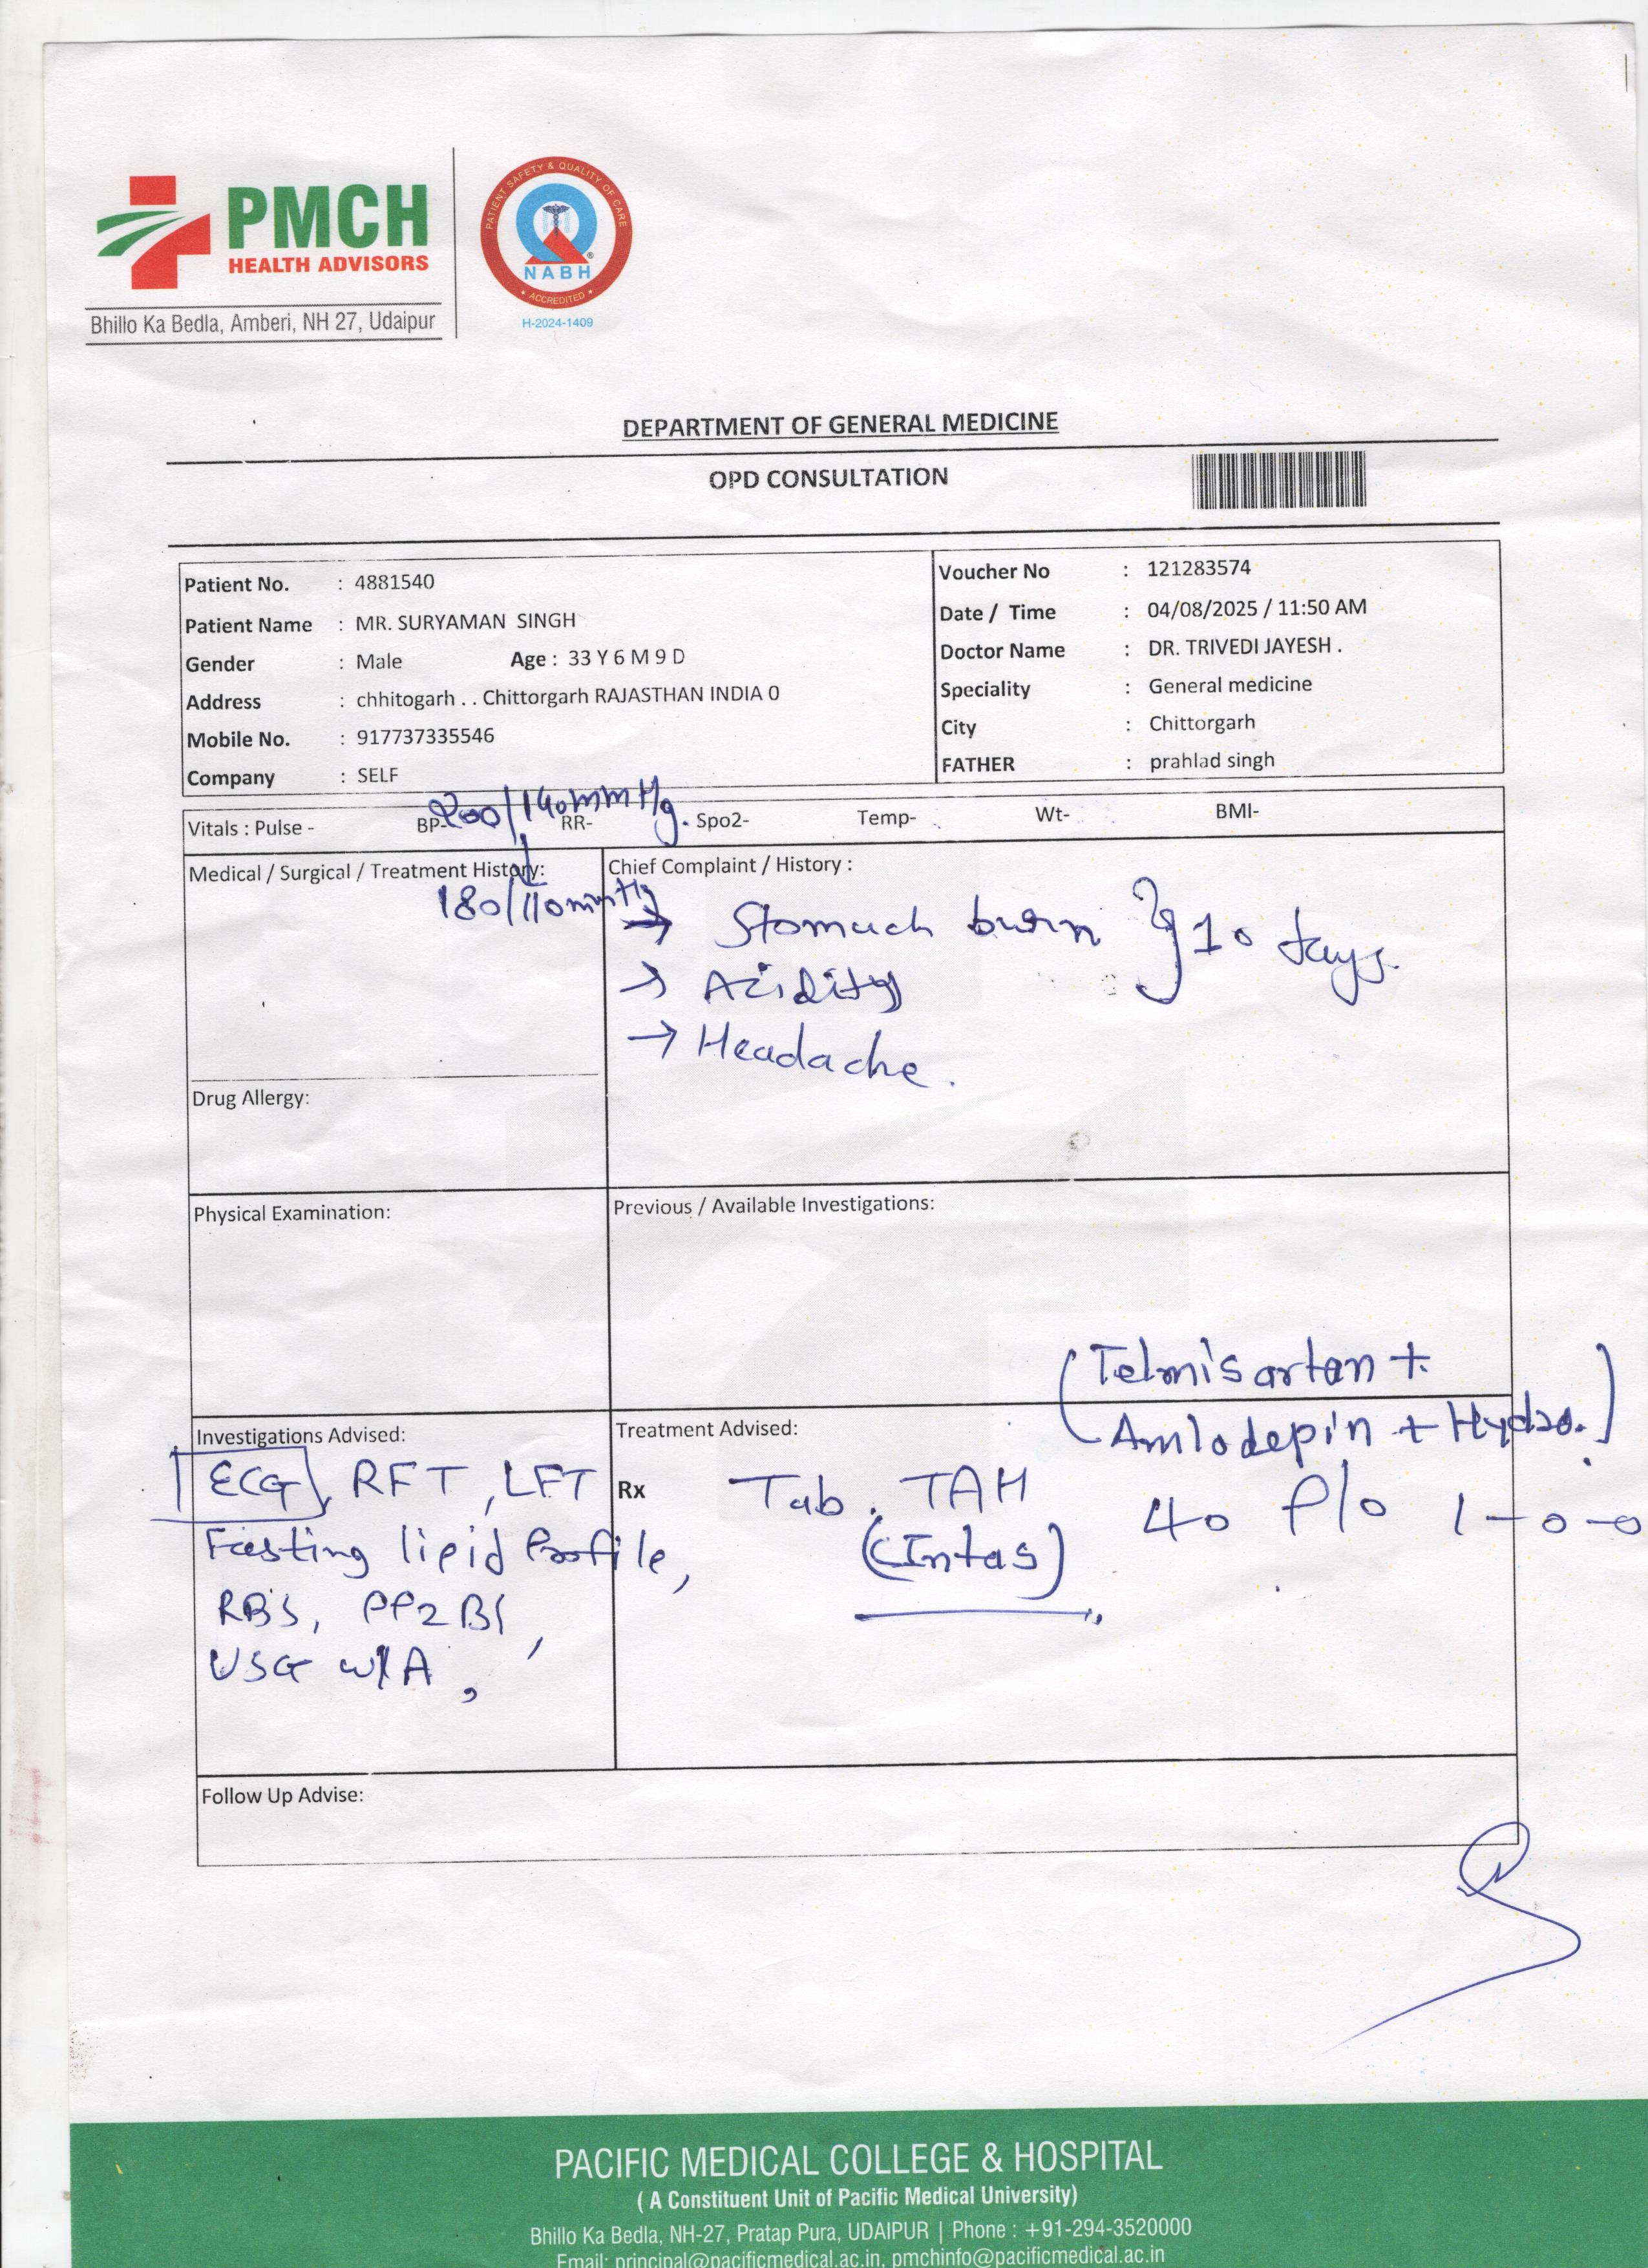 PMCH
HEALTH ADVISORS
Bhillo Ka Bedla, Amberi, NH 27, Udaipur
PATIENT SAFETY & QUALITY OF CARE
NABH
ACCREDITED
H-2024-1409
DEPARTMENT OF GENERAL MEDICINE
OPD CONSULTATION
Patient No. : 4881540
Patient Name : MR. SURYAMAN SINGH
Gender : Male Age : 33 Y 6 M 9 D
Address : chhitogarh . . Chittorgarh RAJASTHAN INDIA 0
Mobile No. : 917737335546
Company : SELF
Voucher No : 121283574
Date / Time : 04/08/2025 / 11:50 AM
Doctor Name : DR. TRIVEDI JAYESH .
Speciality : General medicine
City : Chittorgarh
FATHER : prahlad singh
Vitals : Pulse - BP- 200/140mmHg. RR- Spo2- Temp- Wt- BMI-
Medical / Surgical / Treatment History:
180/110mmHg
Chief Complaint / History :
→ Stomach burn } 10 days.
→ Acidity
→ Headache.
Drug Allergy:
Physical Examination:
Previous / Available Investigations:
(Telmisartan +
Amlodepin + Hydro.)
Investigations Advised:
ECG, RFT, LFT
Fasting lipid Profile,
RBS, PP2BS,
USG W/A,
Treatment Advised:
Rx Tab. TAH 40 P/o 1-0-0
(Intas)
Follow Up Advise:
PACIFIC MEDICAL COLLEGE & HOSPITAL
( A Constituent Unit of Pacific Medical University)
Bhillo Ka Bedla, NH-27, Pratap Pura, UDAIPUR | Phone : +91-294-3520000
Email: principal@pacificmedical.ac.in, pmchinfo@pacificmedical.ac.in